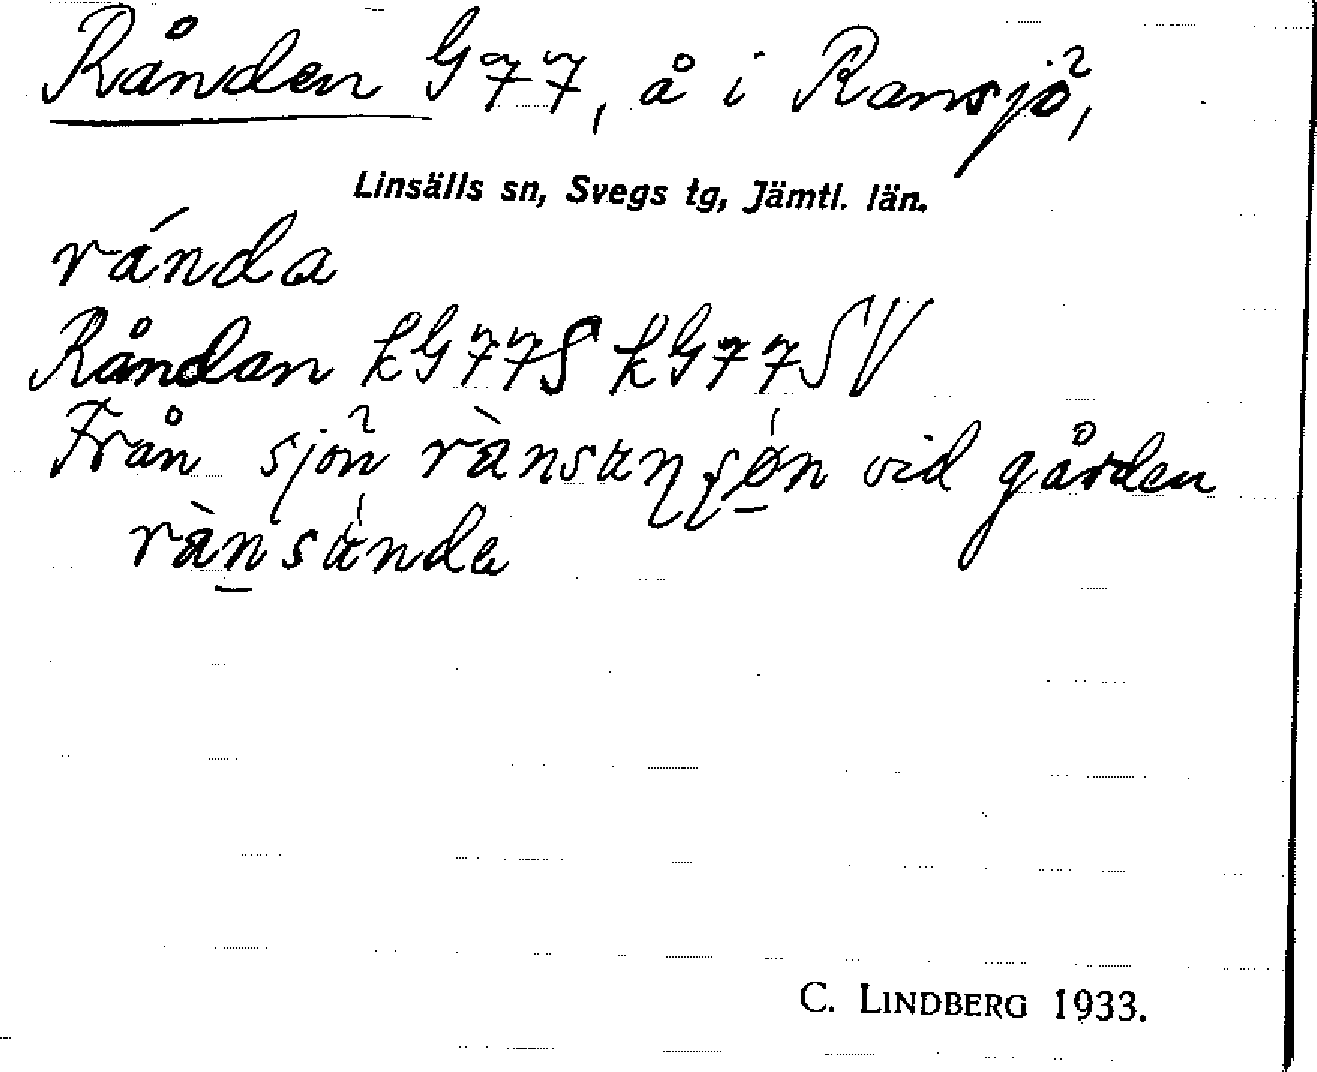 Rånden G77, å i Ransjö,
Linsälls sn, Svegs tg, Jämtl. län.
ránda
Råndan kG77S kG77SV
Från sjön rànsaŋʂǿ̲n vid gården
ràn̲sánda
C. LINDBERG 1933.